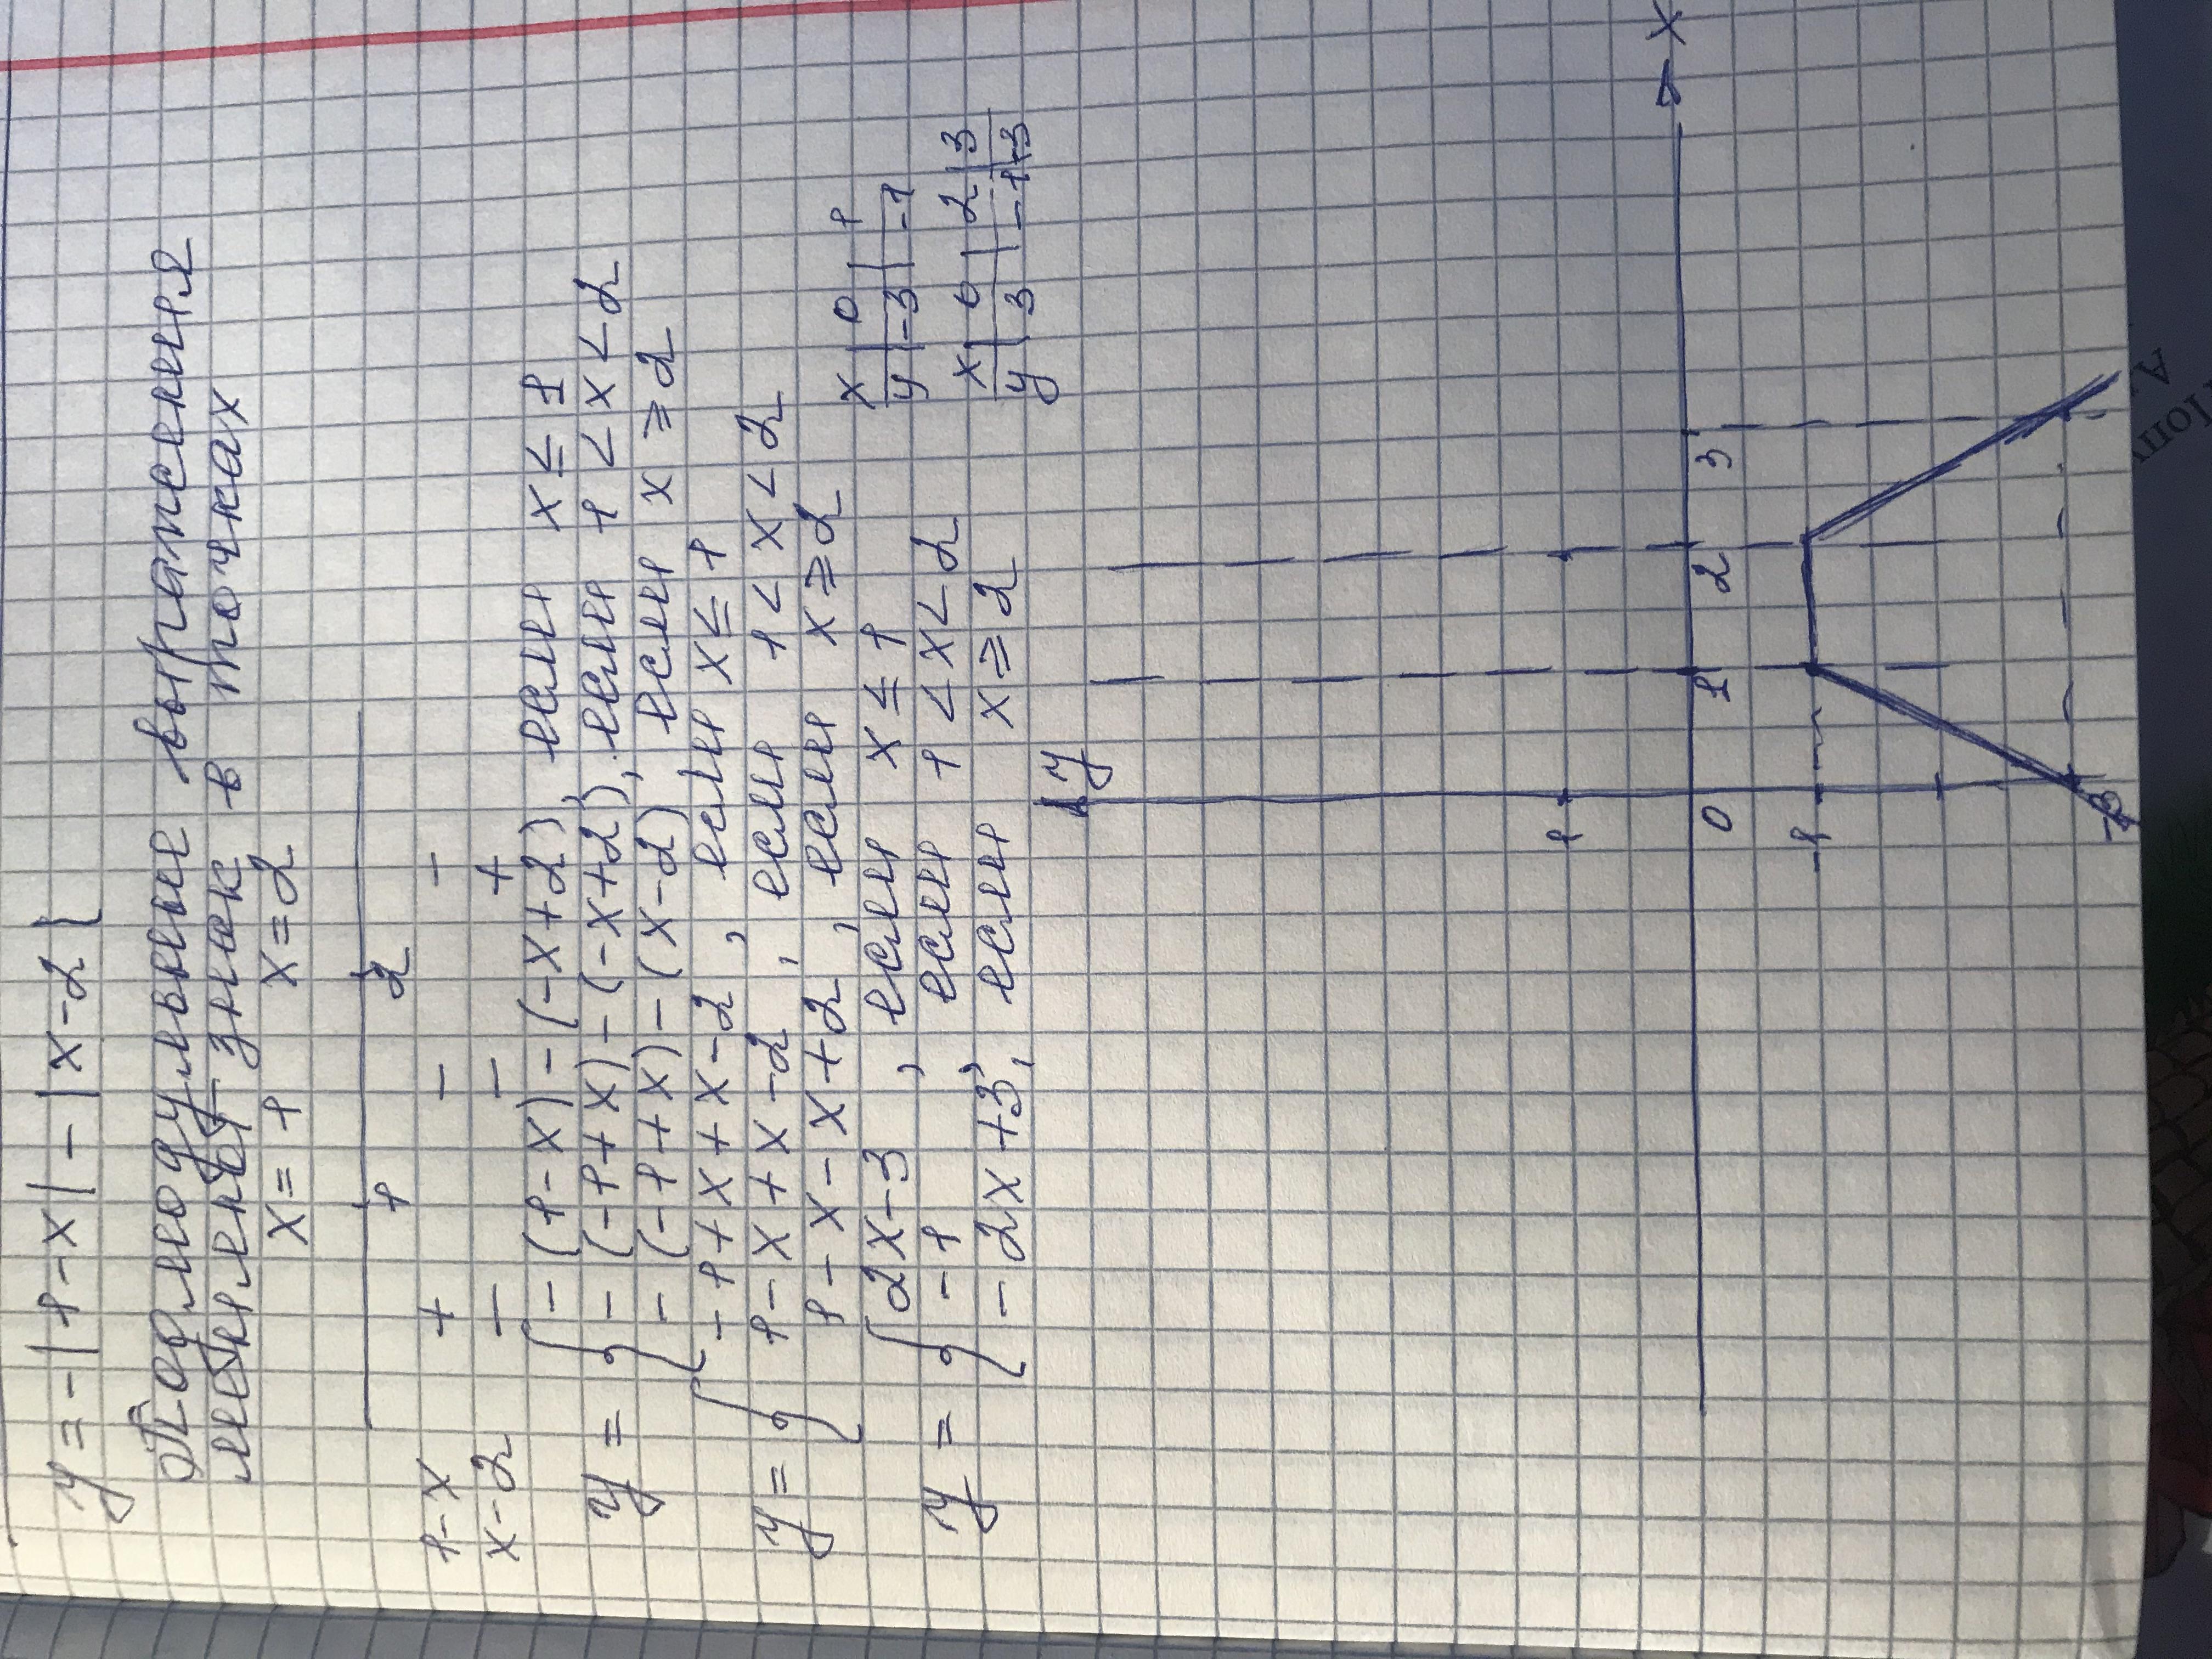 y = -|1-x| - |x-2|
Подмодульные выражения
меняют знак в точках
x = 1 x = 2
1 2
1-x + - -
x-2 - - +
-(1-x)-(-x+2), если x ≤ 1
y = { -(-1+x)-(-x+2), если 1 < x < 2
-(-1+x)-(x-2), если x ≥ 2
-1+x+x-2, если x ≤ 1
y = { 1-x+x-2, если 1 < x < 2
1-x-x+2, если x ≥ 2
2x-3, если x ≤ 1
y = { -1, если 1 < x < 2
-2x+3, если x ≥ 2
x | 0 | 1
y | -3 | -1
x | 0 | 2 | 3
y | 3 | -1 | -3
y
1
0 1 2 3 x
-1
-3